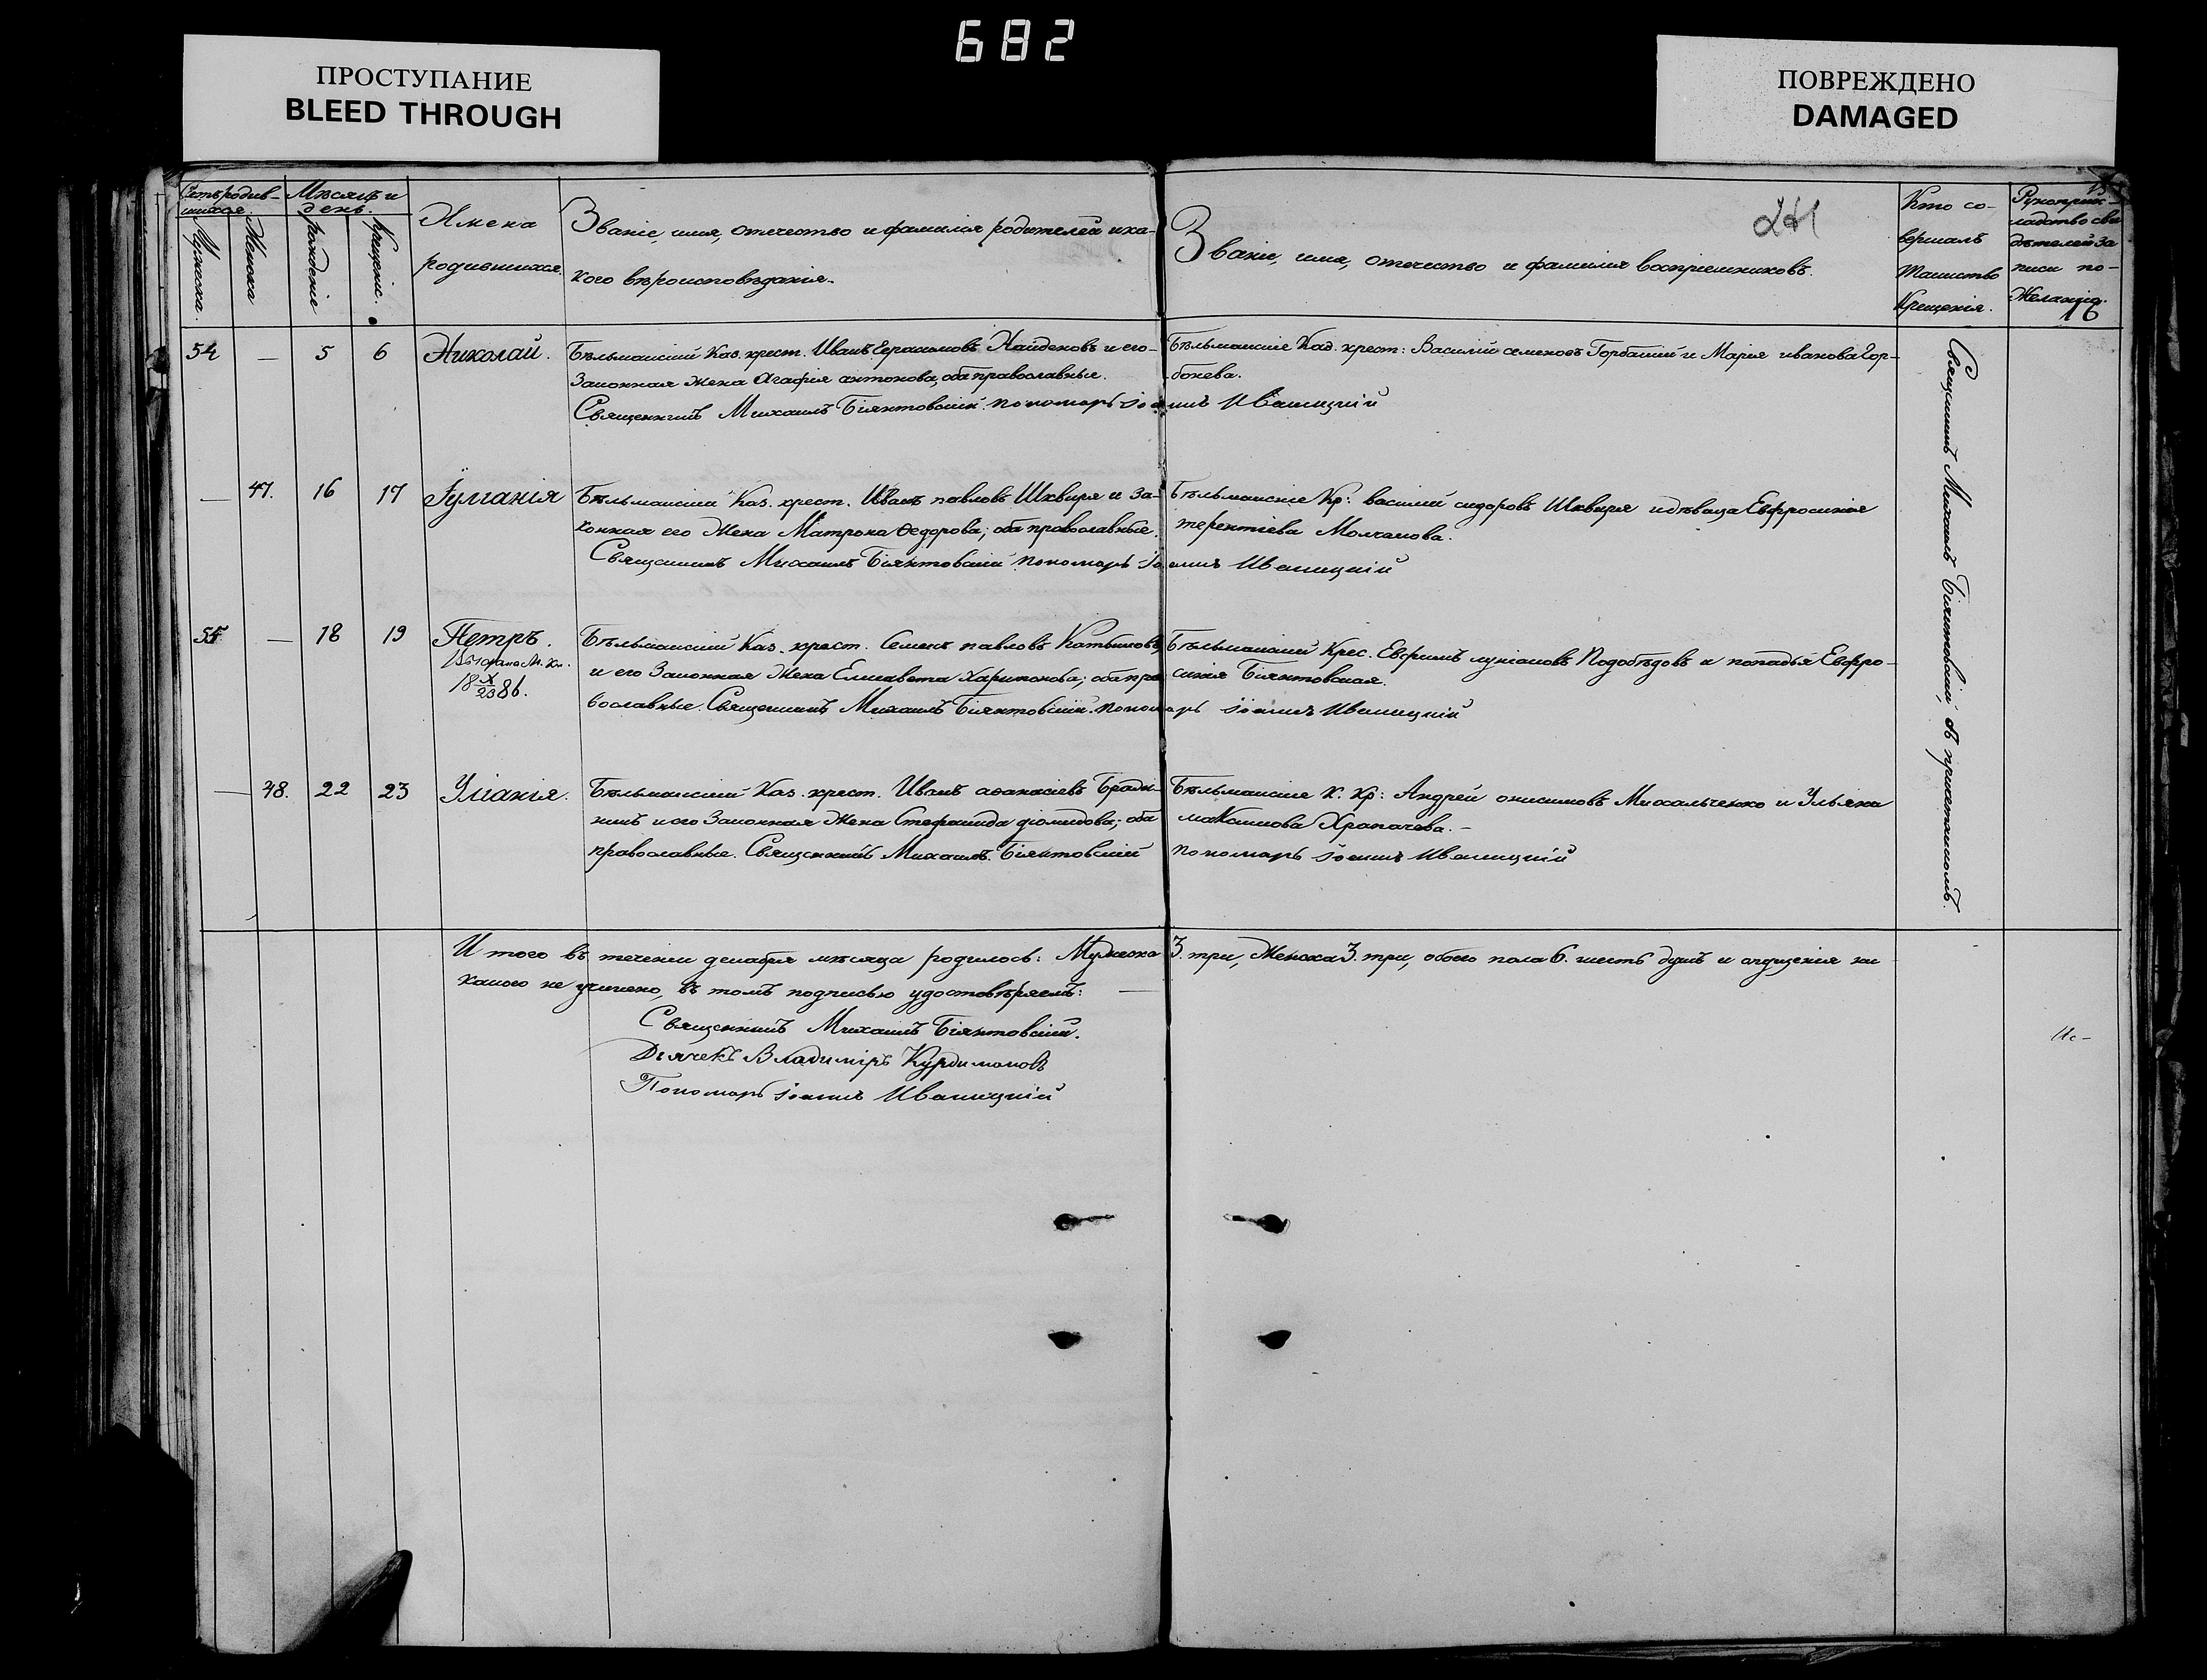 682
ПРОСТУПАНИЕ
BLEED THROUGH
ПОВРЕЖДЕНО
DAMAGED
241
16
Счетъ родив-
шихся.
Мужеска.
Женска
Мѣсяцъ и
день.
рожденіе
Крещеніе.
Имена
родившихся.
Званіе, имя, отечество и фамилія родителей и ка-
кого вѣроисповѣданія.
Званіе, имя, отечество и фамилія воспріемниковъ.
Кто со-
вершалъ
таинство
Крещенія.
Рукоприк-
ладство сви
дѣтелей за
писи по-
Желанію.
54 — 5 6 Николай.
Бѣльманскій Каз. крест. Иванъ Ерасимовъ Найденовъ и его
Законная жена Агафія антонова, оба православные.
Священникъ Михаилъ Біянтовскій. пономарь іоаннъ Иваницкій
Бѣльманскіе Каз. крест: Василій семеновъ Горбаній и Марія иванова Гор-
бонева.
— 47. 16 17 Іуліанія
Бѣльманскій Каз. крест. Иванъ павловъ Шквиря и за-
конная его Жена Матрона Ѳедорова; оба православные.
Священникъ Михаилъ Біянтовскій пономарь іоаннъ Иваницкій
Бѣльманскіе Кр: василій сидоровъ Шквиря и дѣвица Евфросинія
терентіева Молчанова.
55. — 18 19 Петръ.
18 X/23 86.
Бѣльманскій Каз. крест. Семенъ павловъ Катвиковъ
и его Законная Жена Елисавета Харитонова; оба пра
вославные. Священникъ Михаилъ Біянтовскій. пономарь іоаннъ Иваницкій
Бѣльманскій Крес. Евфимъ лукіановъ Подобѣдовъ и попадья Евфро-
синія Біянтовская.
— 48. 22 23 Уліанія.
Бѣльманскій Каз. крест. Иванъ аѳанасіевъ Брадн-
никъ и его Законная Жена Стефанида діомидова; оба
православные. Священникъ Михаилъ. Біянтовскій
Бѣльманскіе К. Кр: Андрей онисимовъ Михальченко и Ульяна
максимова Храпачева. —
пономарь іоаннъ Иваницкій
Священникъ Михаилъ Біянтовскій, съ причетникомъ.
Итого въ теченіи декабря мѣсяца родилось: Мужеска 3. три, Женска 3. три, обоего пола 6. шесть душъ и опущенія ни
какого не учинено, въ томъ подписью удостовѣряемъ:
Священникъ Михаилъ Біянтовскій.
Дьячекъ Владиміръ Курдимановъ
Пономарь іоаннъ Иваницкій
Ис-